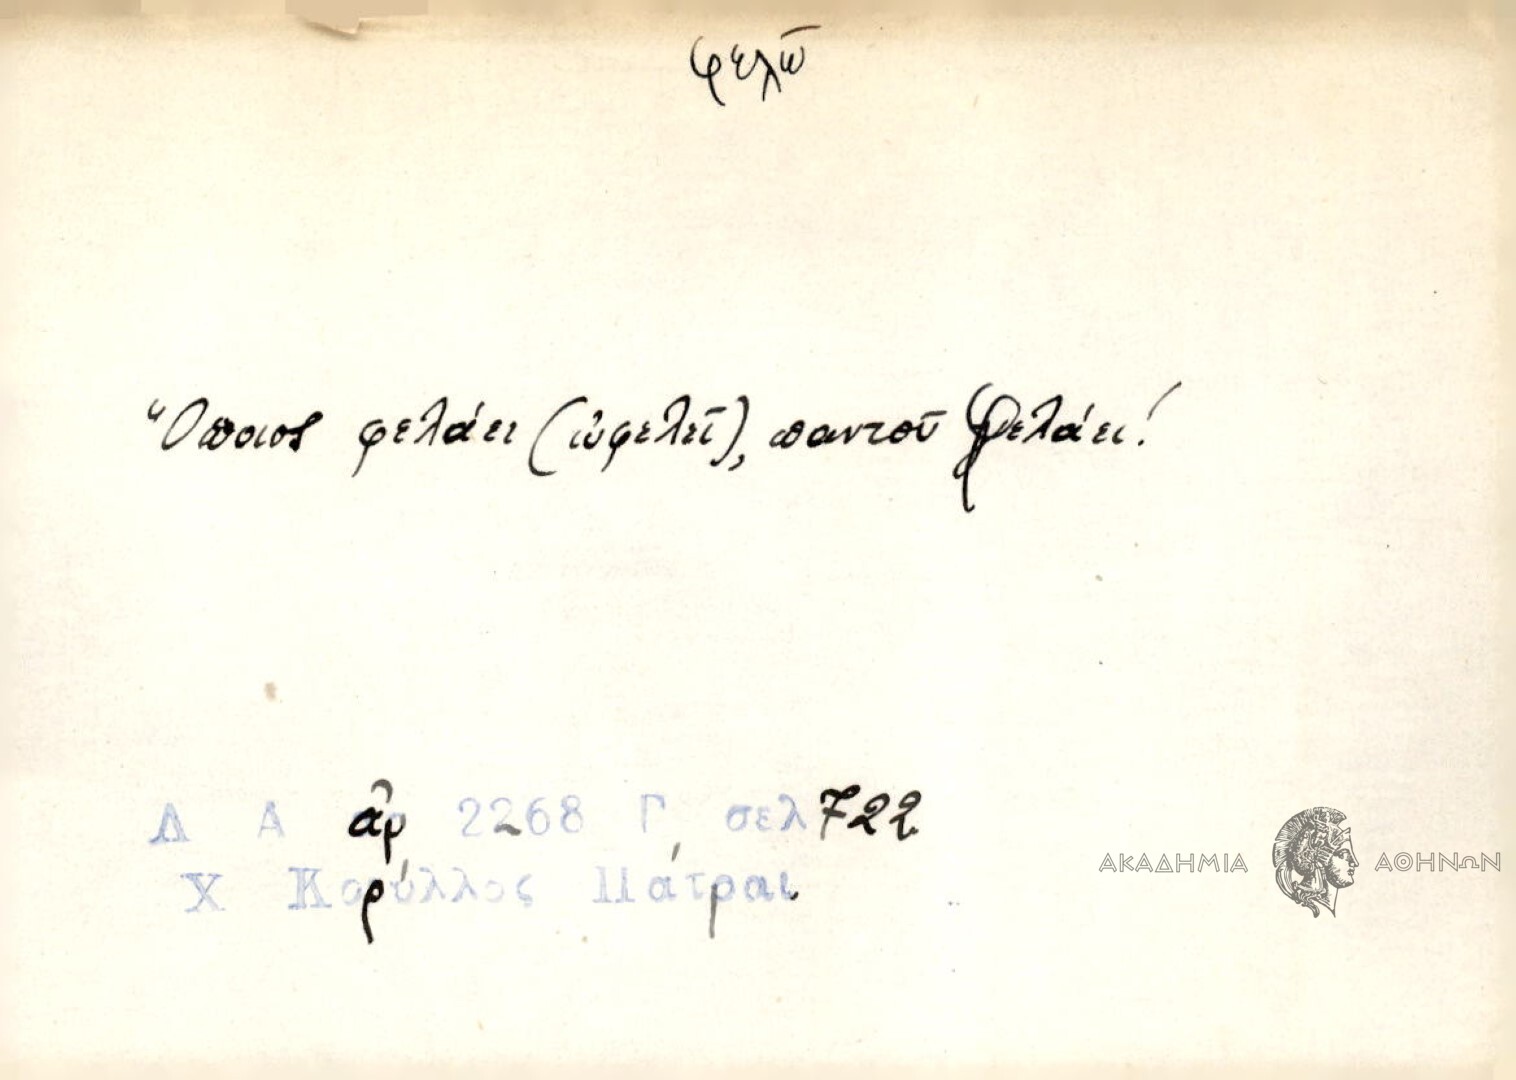 φελῶ
Ὅποιος φελάει (ὠφελεῖ), παντοῦ φελάει!
Λ Α ἀρ 2268 Γ σελ 722
Χ Κορύλλος Πάτραι
ΑΚΑΔΗΜΙΑ ΑΘΗΝΩΝ